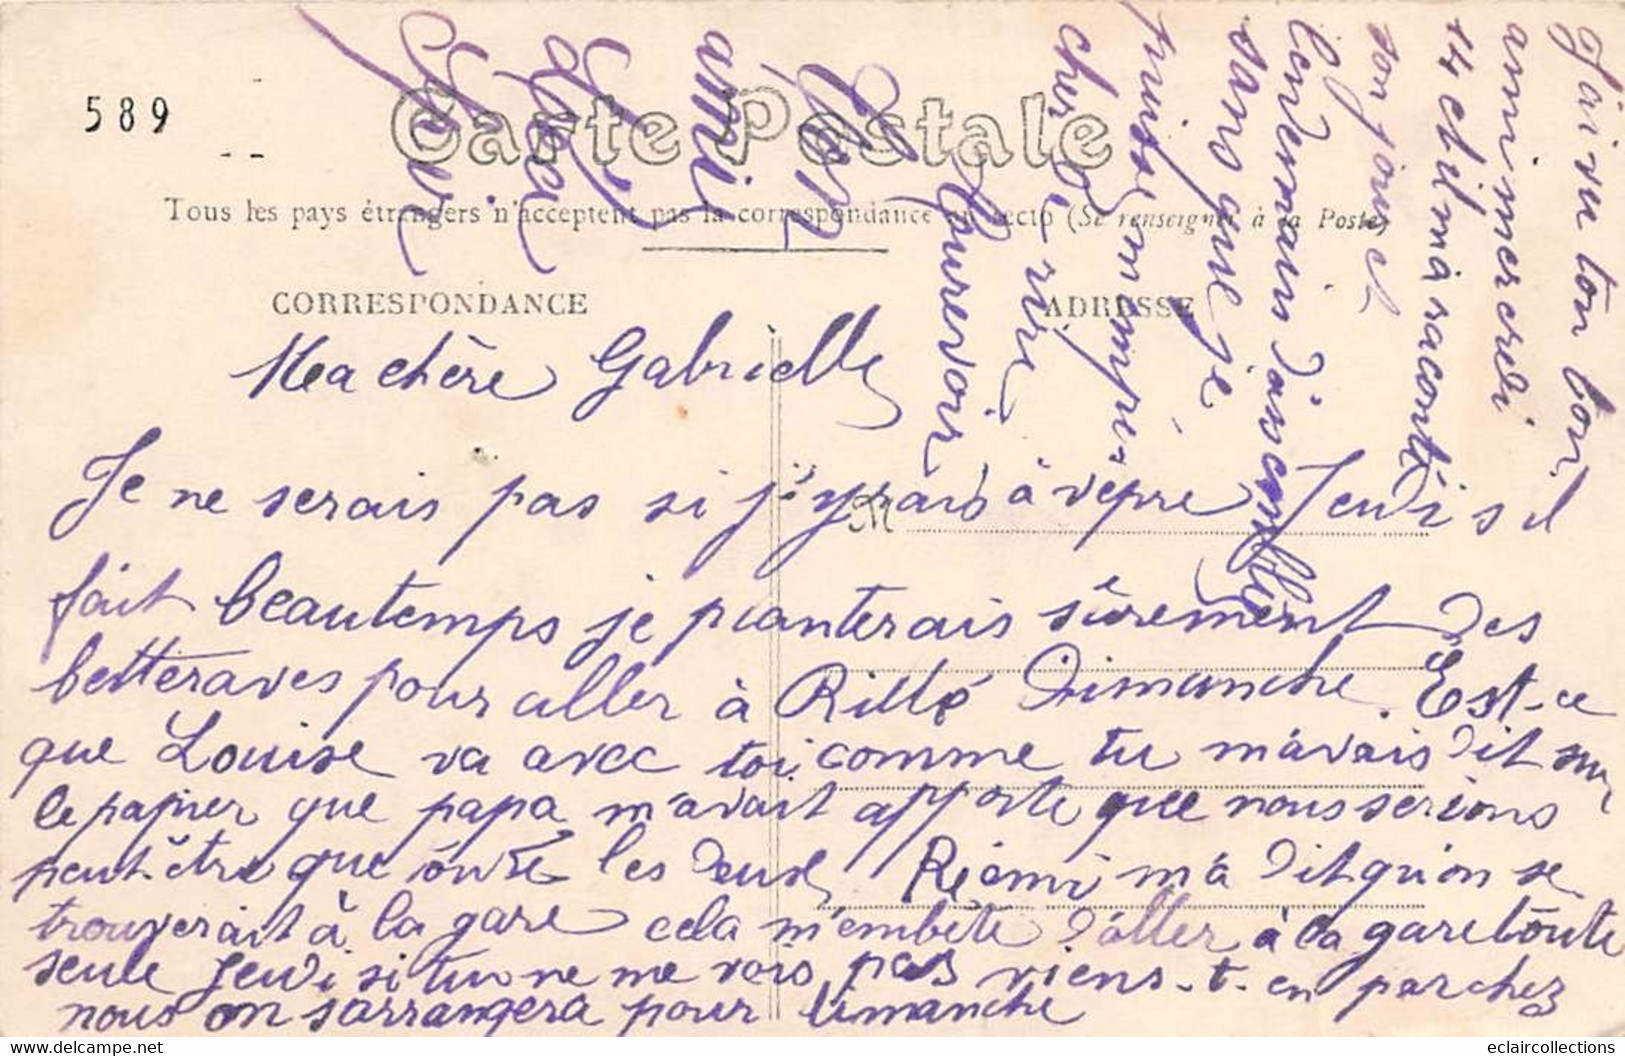 589
Carte Postale
Tous les pays étrangers n'acceptent pas la correspondance au recto (Se renseigner à la Poste)
CORRESPONDANCE
ADRESSE
M
Ma chère Gabrielle
Je ne serais pas si j'yrais à vèpre Jeudi s il
fait beau temps je planterais sûrement des
betteraves pour aller à Rillé Dimanche. Est-ce
que Louise va avec toi comme tu m'avais dit sur
le papier que papa m'avait apporte que nous serions
peut-être que toute les deux Rémi m'a dit qu'on se
trouverait à la gare cela m'embête d'aller à la gare toute
seule Jeudi si tu ne me vois pas viens-t-en par chez
nous on sarrangera pour dimanche
J'ai vu ton bon
ami mercredi
et il m'a raconté
son jour et
lendemain d'assemblée
sans que je
puisse m'empêcher
de rire
Aurevoir
Ton
amie